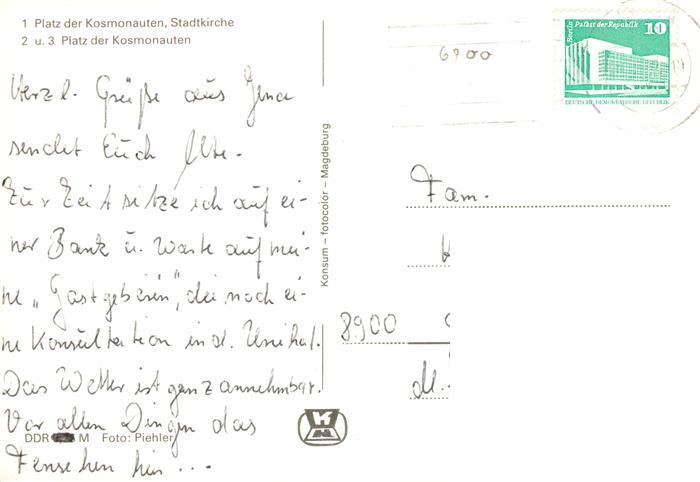 1 Platz der Kosmonauten, Stadtkirche
2 u. 3 Platz der Kosmonauten
Herzl. Grüße aus Jena
sendet Euch
Zur Zeit sitze ich auf ei-
ner Bank u. warte auf mei-
ne „Gastgeberin", die noch ei-
ne Konsultation in d. Uni hat.
Das Wetter ist ganz annehmbar.
Vor allen Dingen das
Fernsehen hin ...
DDR M Foto: Piehler
Konsum – fotocolor – Magdeburg
6900
Berlin Palast der Republik 10
DEUTSCHE DEMOKRATISCHE REPUBLIK
Fam.
8900